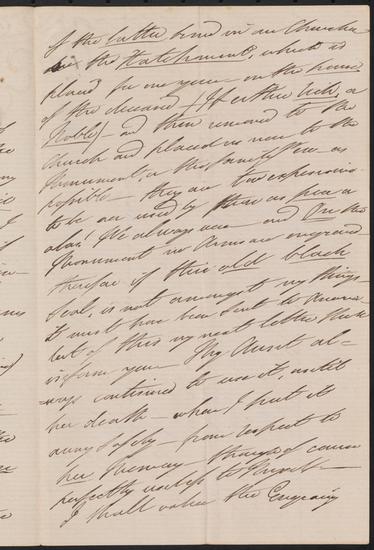 of the latter kind in our Churches
is the Hatchment, which is
placed for one year on the house
of the deceased (If either rich, or
Noble) – and then removed to the
Church and placed as near to the
Monument, or the family Pew as
possible – They are too expensive
to be used by those as poor as
alas! We always were – and On the
Monument no Arms are engraved
therefore if this old black
Seal, is not amongst my things
it must have been sent to America
but of this my next letter shall
inform you – My Aunt al-
ways continued to use it, until
her death – when I put it
away safely – from respect to
her Memory – though of course
perfectly useless to myself –
I shall value the Engraving